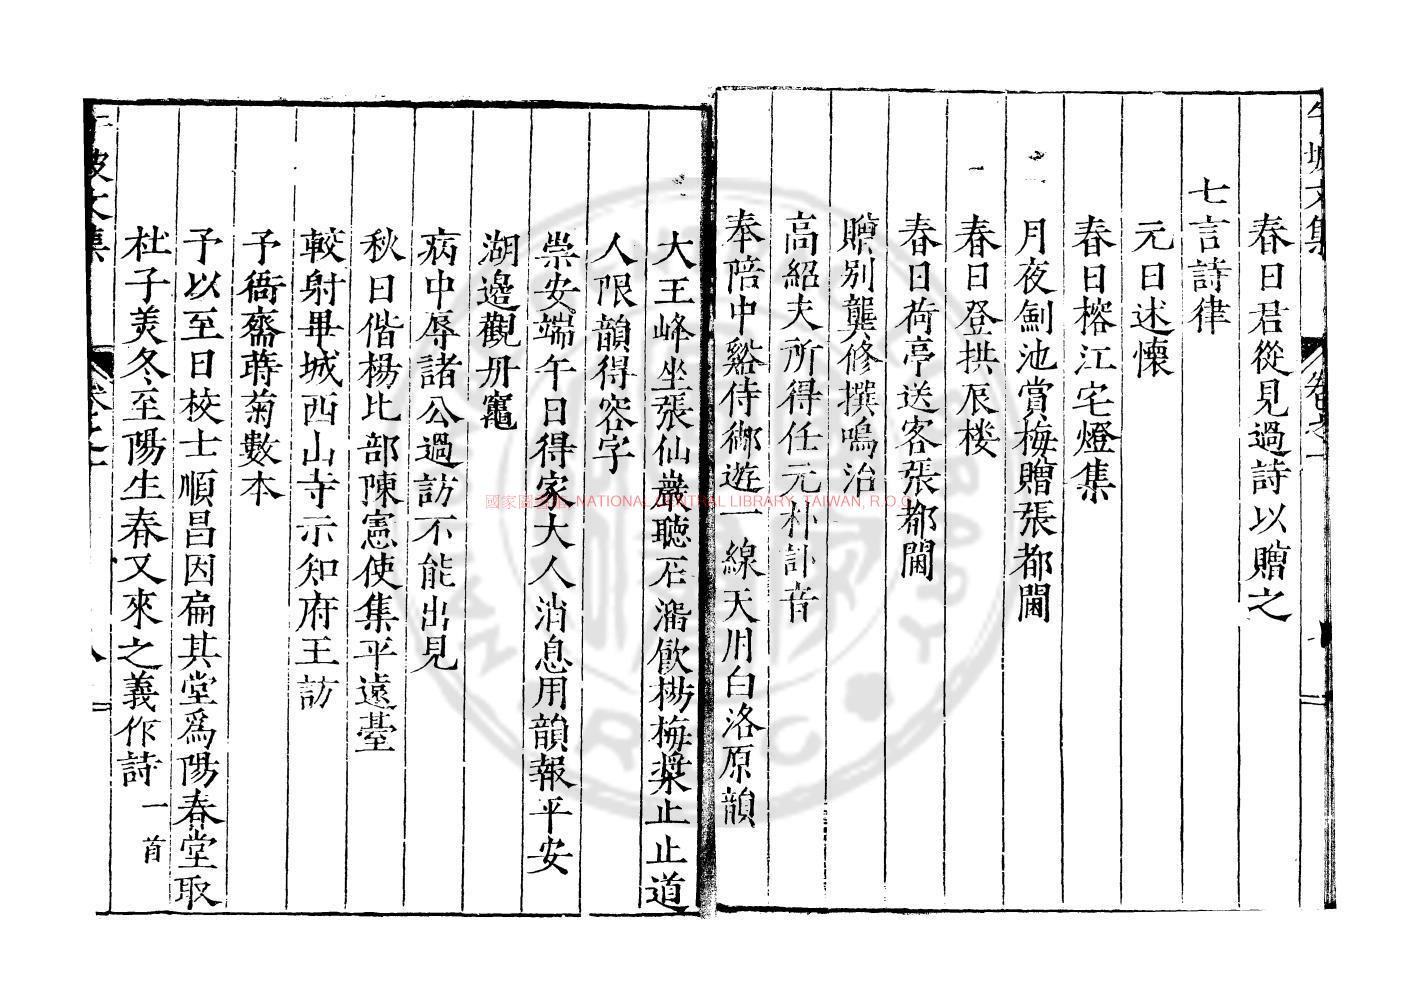 春日君從見過詩以贈之
七言詩律
元日述懷
春日榕江宅燈集
月夜劍池賞梅贈張都閫
春日登拱辰樓
春日荷亭送客張都閫
贈別龔修撰鳴治
高紹夫所得任元朴訃音
奉陪中谿侍御遊一線天用白洛原韻
大王峰坐張仙巖聽石溜飲楊梅漿止止道
人限韻得容字
崇安端午日得家大人消息用韻報平安
湖邊觀丹竈
病中辱諸公過訪不能出見
秋日偕楊比部陳憲使集平遠臺
較射畢城西山寺示知府王訪
予衙齋蒔菊數本
予以至日校士順昌因扁其堂爲陽春堂取
杜子美冬至陽生春又來之義作詩一首
國家圖書館 NATIONAL CENTRAL LIBRARY, TAIWAN, R.O.C